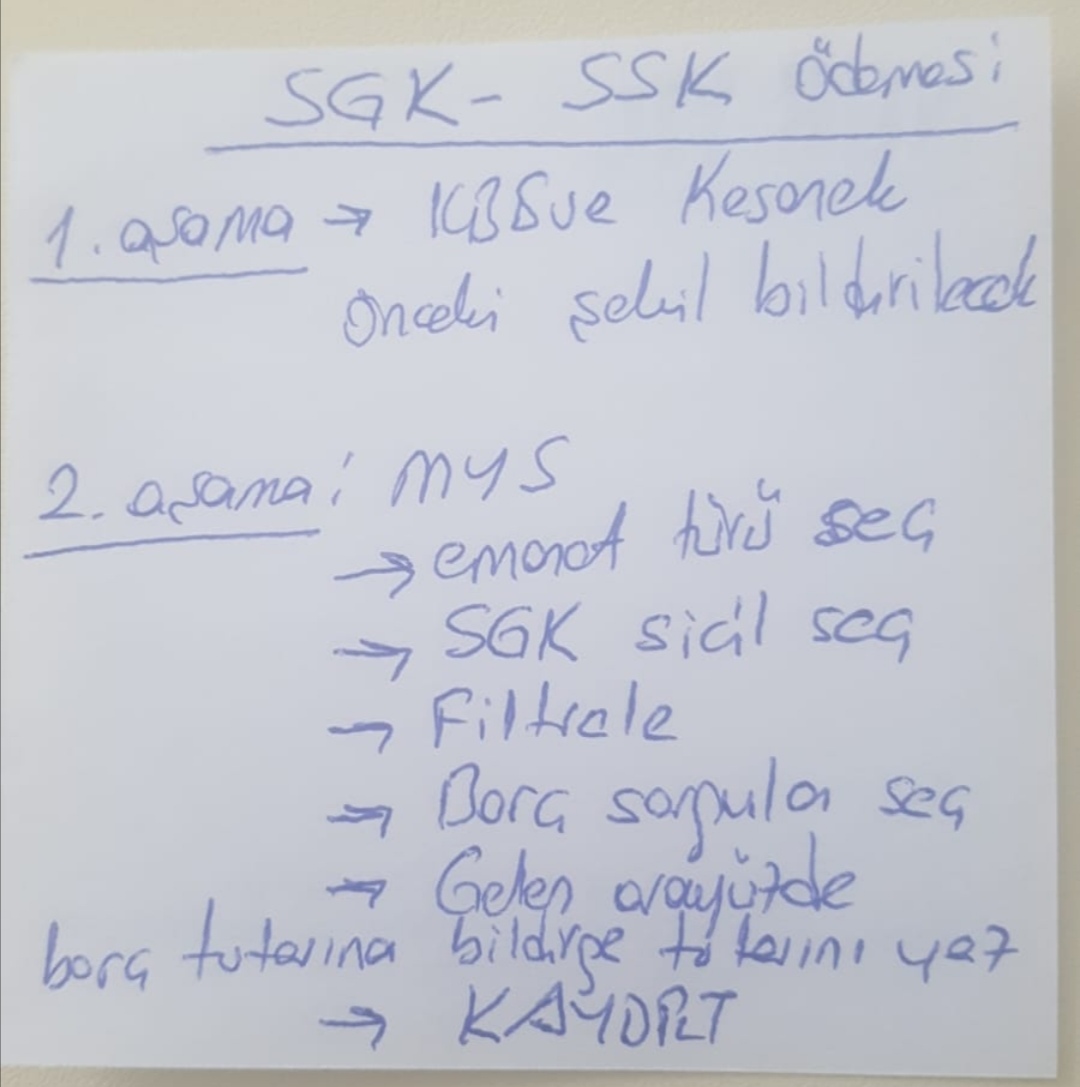 SGK - SSK Ödemesi
1. aşama → KBS ve Kesenek
önceki şekil bildirilecek
2. aşama: MYS
→ emanet türü seç
→ SGK sicil seç
→ Filtrele
→ Borç sorgula seç
→ Gelen arayüzde
borç tutarına bildirge tutarını yaz
→ KAYDET